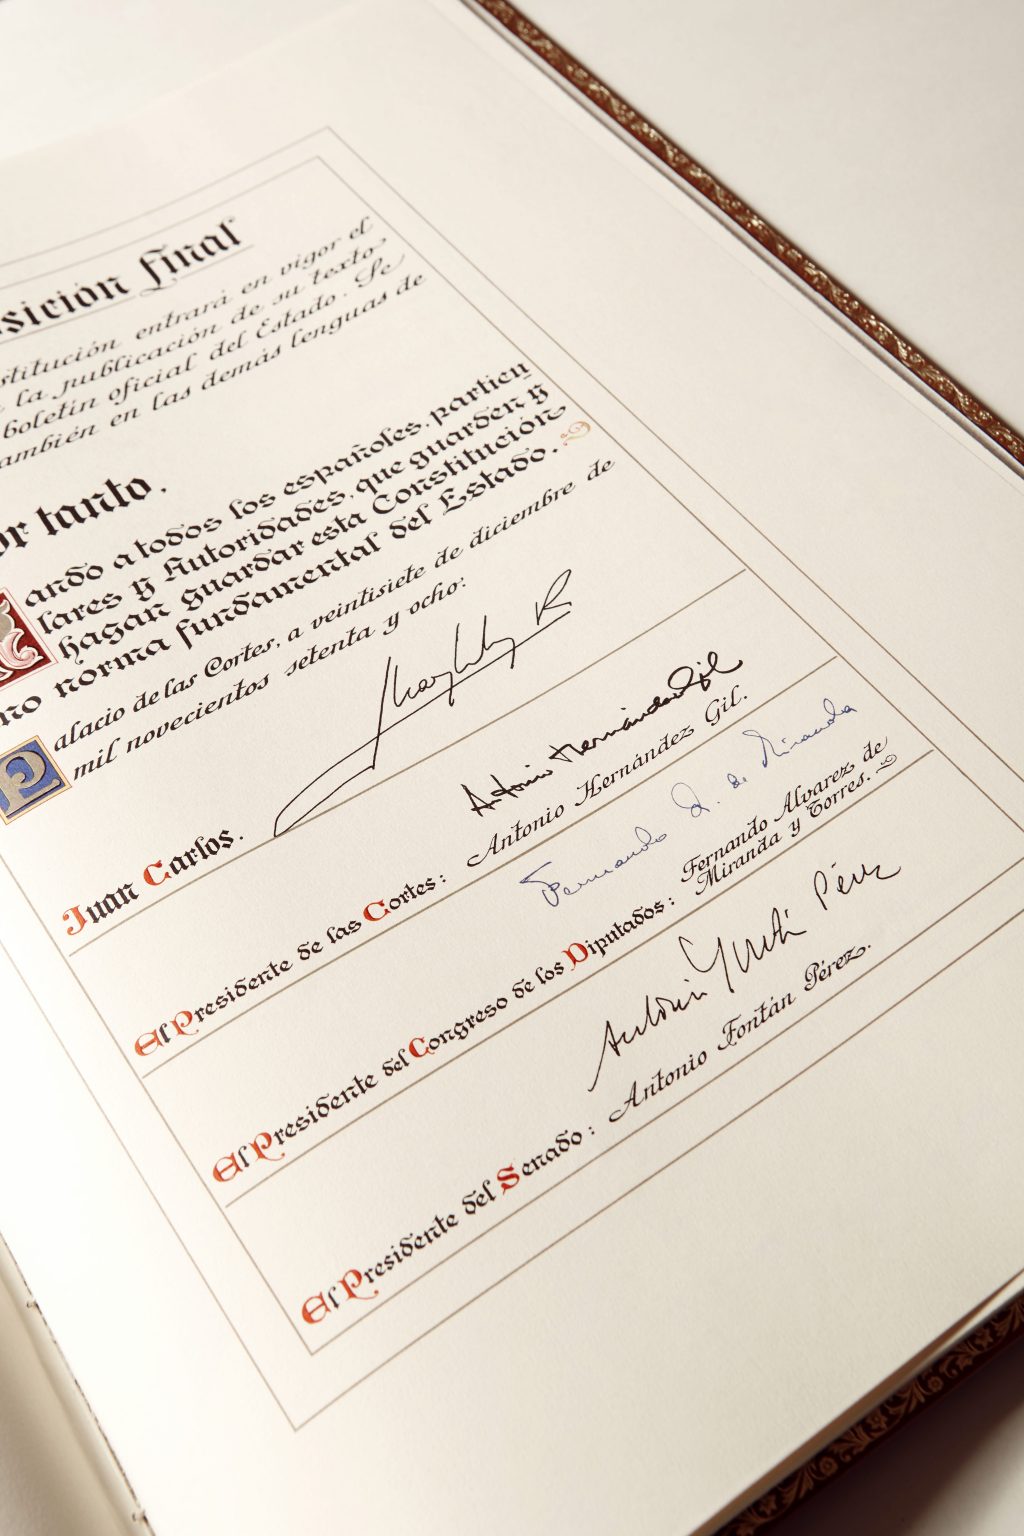 sición final
stitución entrará en vigor el
la publicación de su texto
boletín oficial del Estado. Se
ambién en las demás lenguas de
or tanto,
ando a todos los españoles, particu
lares y Autoridades, que guarden y
hagan guardar esta Constitución
no norma fundamental del Estado.
Palacio de las Cortes, a veintisiete de diciembre de
mil novecientos setenta y ocho:
Juan Carlos.
R
Antonio Hernández Gil
El Presidente de las Cortes: Antonio Hernández Gil.
Fernando A. de Miranda
El Presidente del Congreso de los Diputados: Fernando Alvarez de
Miranda y Torres.
Antonio Fontán Pérez
El Presidente del Senado: Antonio Fontán Pérez.